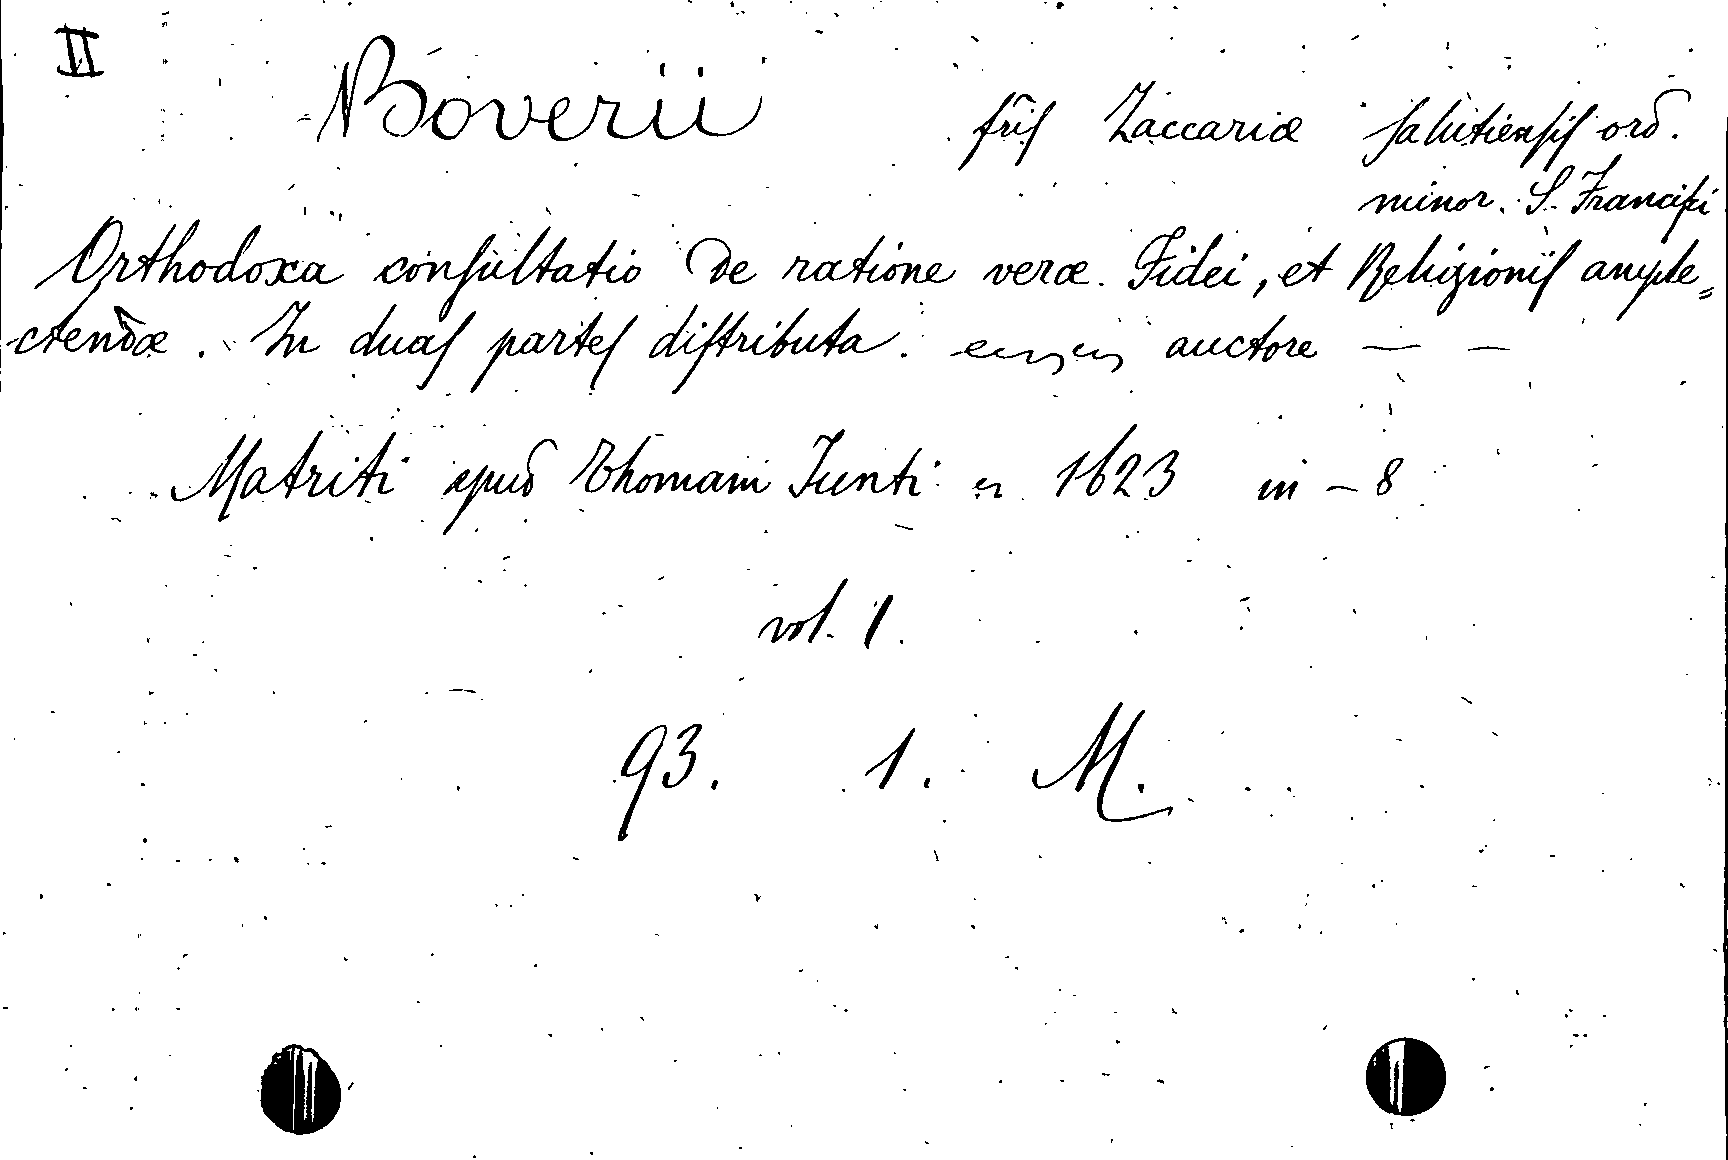 II
Boverii fris Zaccariæ Salutiensis ord.
minor. S. Francisci
Orthodoxa consultatio de ratione veræ Fidei, et Religionis ample=
ctendæ. In duas partes distributa. auctore — —
Matriti apud Thomam Junti 1623 in – 8
vol. 1.
93. 1. M.